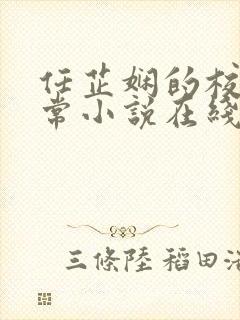 任芷娴的校
常小说在线
三條陸 稻田浩